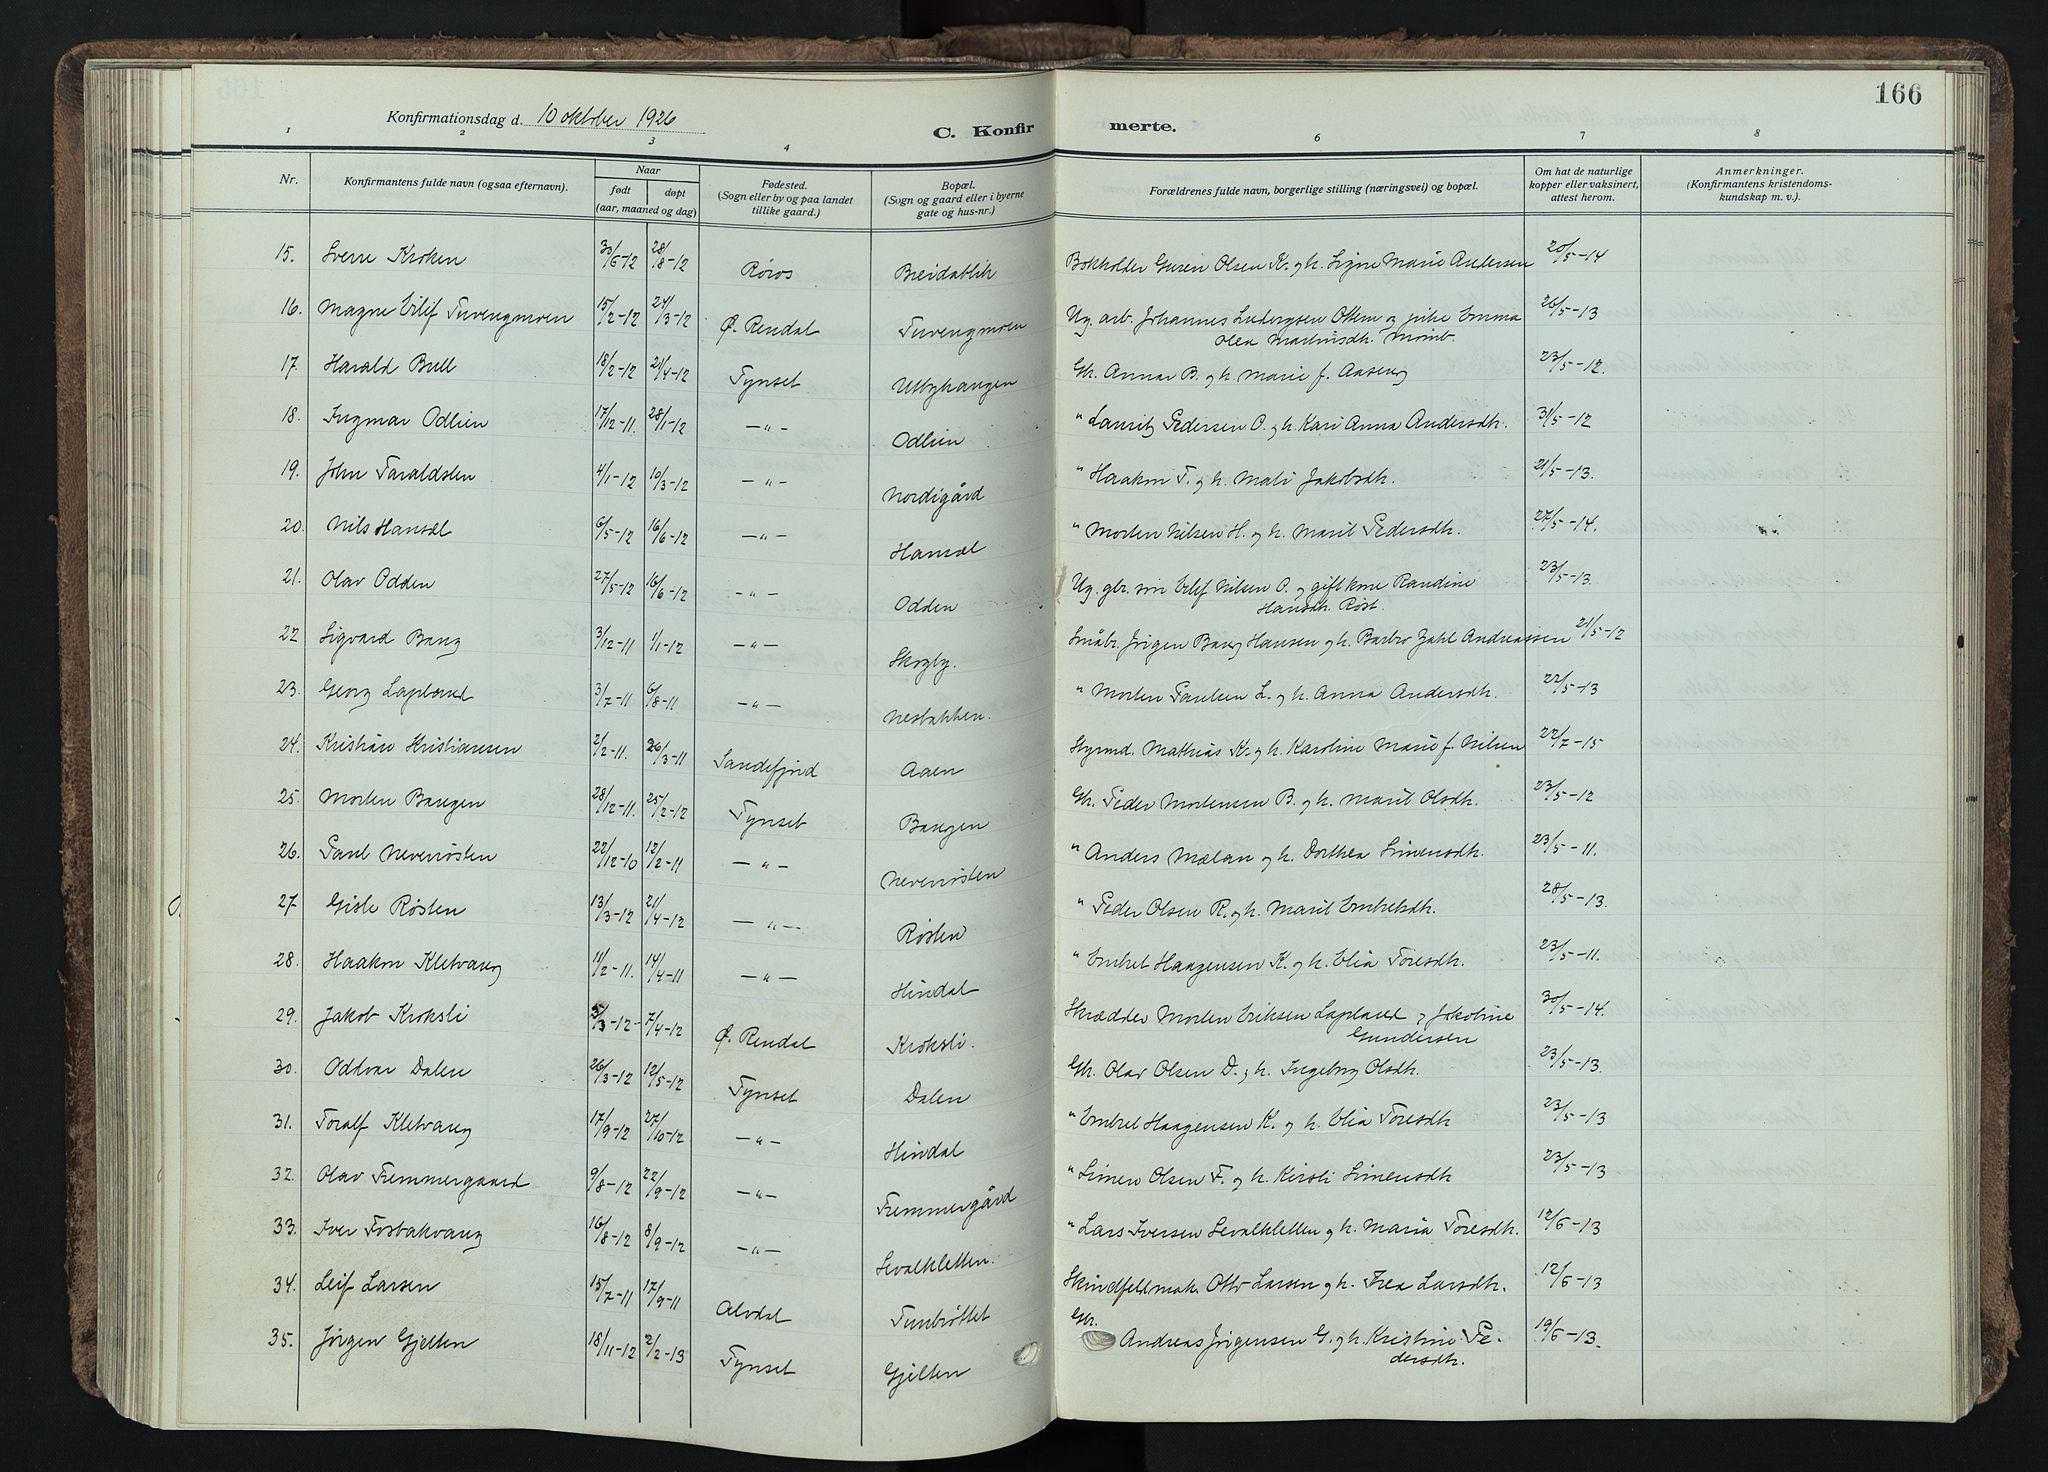 166
Konfirmationsdag d. 10 oktober 1926
C. Konfirmerte.
1 2 3 4 6 7 8
Nr. Konfirmantens fulde navn (ogsaa efternavn). Naar født døpt (aar, maaned og dag) Fødested. (Sogn eller by og paa landet tillike gaard.) Bopæl. (Sogn og gaard eller i byerne gate og hus-nr.) Forældrenes fulde navn, borgerlige stilling (næringsvei) og bopæl. Om hat de naturlige kopper eller vaksinert, attest herom. Anmerkninger. (Konfirmantens kristendomskundskap m. v.).
15. Sverre Kroken 30/6-12 28/8-12 Røros Breidablik Bokholder Olsen K. og h. Signe Marie Andersen 20/5-14
16. Magne Eilif Tuvengmoen 15/2-12 24/3-12 Ø. Rendal Tuvengmoen Ug. arb. Johannes Ludvigsen Otten og pike Emma
Olea Martinsdh.
26/5-13
17. Harald Bull 18/2-12 21/4-12 Tynset Utbyhaugen Gbr. Annar B. og h. Marie f. Aaseng 23/5-12.
18. Ingmar Odlien 17/12-11. 28/1-12 -"- Odlien " Laurits Pedersen O. og h. Kari Anna Andersdh. 31/5-12
19. John Taraldsten 4/1-12 10/3-12 -"- Nordigård " Haakon T. og h. Mali Jakobsdh. 21/5-13.
20. Nils Hansæl 6/5-12 16/6-12 -"- Hansæl " Morten Nilsen H. og h. Marit Pedersdh. 27/5-14.
21. Olav Odden 27/5-12 16/6-12 -"- Odden Ug. gbr. søn Eilif Nilsen O. og gift kone Randine
Hansdh. Røst.
23/5-13.
22 Sigvard Bang 3/12-11 1/1-12 -"- Skogby. Småbr. Jørgen Bang Hansen og h. Barbro Zahl Andreassen 21/5-12
23. Georg Lapland 3/7-11 6/8-11 -"- Nesbakken. " Morten Paulsen L. og h. Anna Andersdh. 22/5-13
24. Kristian Kristiansen 2/2-11. 26/3-11 Sandefjord Aaen Styrmd. Mathias K. og h. Karoline Marie f. Nilsen 22/7-15
25. Morten Bangen 28/12-11. 25/2-12 Tynset Bangen Gbr. Peder Mortensen B. og h. Marit Olsdh. 23/5-12
26. Paul Neverøsten 22/12-10 12/2-11 -"- Neverøsten " Anders Mælan og h. Dorthea Simensdh. 23/5-11.
27 Gisle Røsten 13/3-12 21/4-12 -"- Røsten " Peder Olsen R. og h. Marit Embretsdh. 28/5-13.
28. Haakon Kletvang 11/2-11. 14/4-11 -"- Hindal " Embret Haagensen K. og h. Elia Toresdh. 23/5-11.
29. Jakob Kroksli 3/3-12 7/4-12 Ø. Rendal Kroksli. Skrædder Morten Eriksen Lapland og Jakobine
Gundersen
30/5-14.
30. Oddvar Dalen 26/3-12 12/5-12 Tynset Dalen Gbr. Olav Olsen D. og h. Ingeborg Olsdh. 23/5-13.
31. Toralf Kletvang 17/9-12 27/10-12 -"- Hindal " Embret Haagensen K. og h. Elia Toresdh 23/5-13
32. Olav Fremmergaard 9/8-12 22/9-12 -"- Fremmergård " Simen Olsen F. og h. Kirsti Simensdh 23/5-13
33. Iver Fosbakvang 16/8-12 8/9-12 -"- Sevalkletten. " Lars Iversen Sevalkletten og h. Maria Toresdh. 12/6-13
34. Leif Larsen 15/7-11 17/9-11 Alvdal Tunbrottet Skindfeldmak. Otto Larsen og h. Frea Larsdh. 12/6-13
35. Jørgen Gjelten 18/11-12 2/2-13 Tynset Gjelten Gbr. Andreas Jørgensen G. og h. Kristine Pe-
dersdh.
19/6-13.